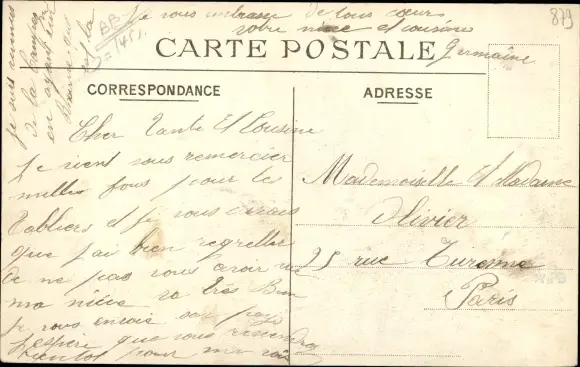 je vous embrasse de tous cœur
votre nièce et cousine
Germaine
879
BB
145
CARTE POSTALE
CORRESPONDANCE
ADRESSE
Cher Tante et Cousine
Je vient vous remercier
milles fous pour les
Tabliers et je vous
que j'ai bien regretter
de ne pas vous avoir vu
ma nièce va très Bien
Je vous envois
j'espère que vous
bientot pour me voir
Mademoiselle et Madame
Olivier
25 rue Turenne
Paris
je suis
de la
en